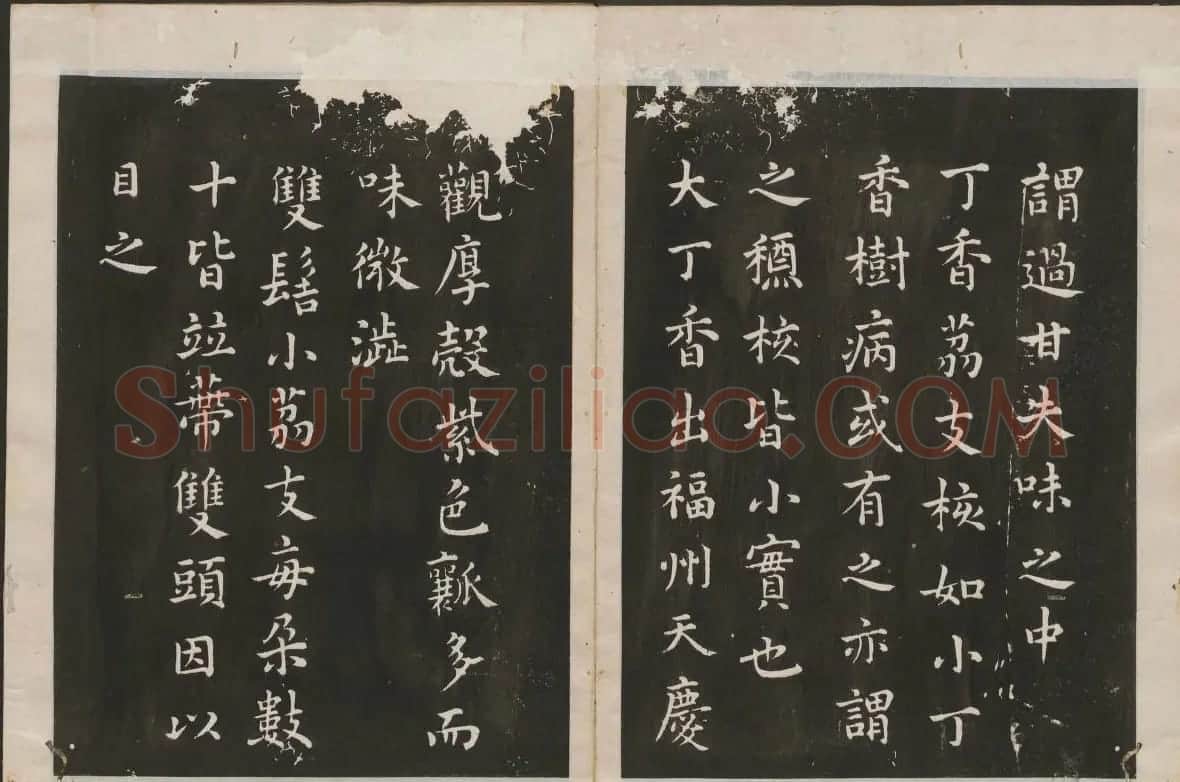 謂過甘失味之中
丁香荔支核如小丁
香樹病或有之亦謂
之穤核皆小實也
大丁香出福州天慶
觀厚殼紫色瓤多而
味微澁
雙髻小荔支每朶數
十皆竝蔕雙頭因以
目之
Shufaziliao.COM